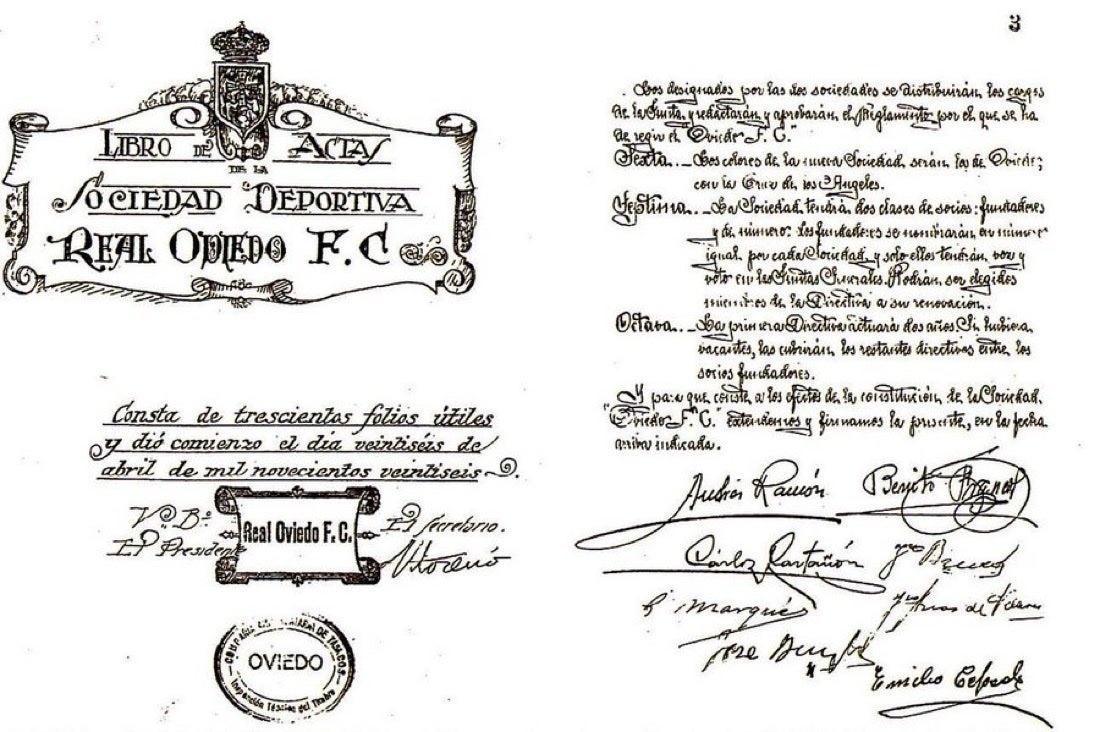 LIBRO DE ACTAS
DE LA
SOCIEDAD DEPORTIVA
REAL OVIEDO F. C
Consta de trescientos folios útiles
y dió comienzo el día veintiséis de
abril de mil novecientos veintiseis
Vº Bº
El Presidente
Real Oviedo F. C.
El Secretario.
COMPAÑIA DE TABACOS
OVIEDO
Inspección Técnica del Timbre
3
Los designados por las dos sociedades se distribuirán los cargos
de la Junta, y redactarán y aprobarán el Reglamento por el que se ha
de regir el "Oviedo F. C."
Sexta.. - Los colores de la nueva Sociedad serán los de Oviedo;
con la Cruz de los Angeles.
Septima. - La Sociedad tendrá dos clases de socios: fundadores
y de número: los fundadores se nombrarán en número
igual por cada Sociedad, y solo ellos tendrán voz y
voto en las Juntas Generales. Podrán ser elegidos
miembros de la Directiva a su renovación.
Octava. - La primera Directiva actuará dos años. Si hubiera
vacantes, las cubrirán los restantes directivos entre los
socios fundadores.
Y para que conste a los efectos de la constitución de la Sociedad
"Oviedo F. C." extendemos y firmamos la presente, en la fecha
arriba indicada.
Andrés Ramón
Benito
Carlos
Marqués
José
Emilio